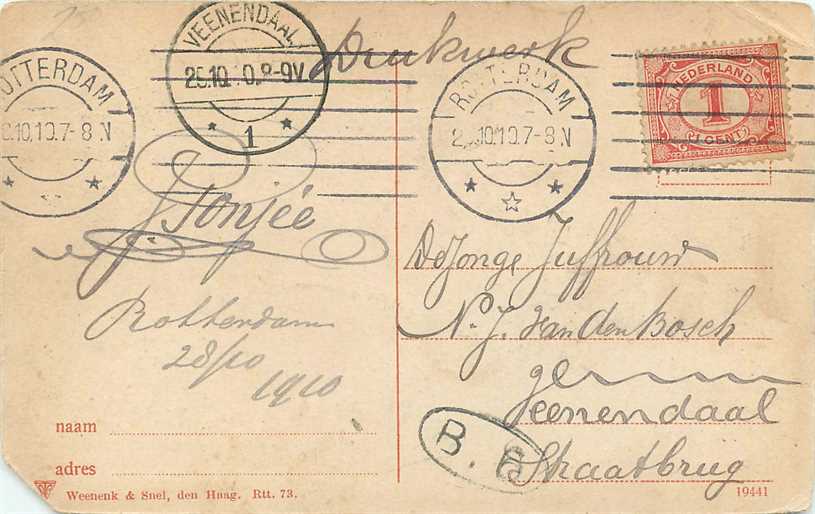 Drukwerk
ROTTERDAM
10.10.7-8 N
VEENENDAAL
25.10. 0.8-9V
1
ROTTERDAM
2 .10 10.7-8.N
NEDERLAND
1
CENT
J. Tonjée
Rotterdam
28/10
1910
De Jonge Juffrouw
N. J. van den Bosch
Veenendaal
Straatbrug
B. 6
naam
adres
Weenenk & Snel, den Haag. Rtt. 73.
19441